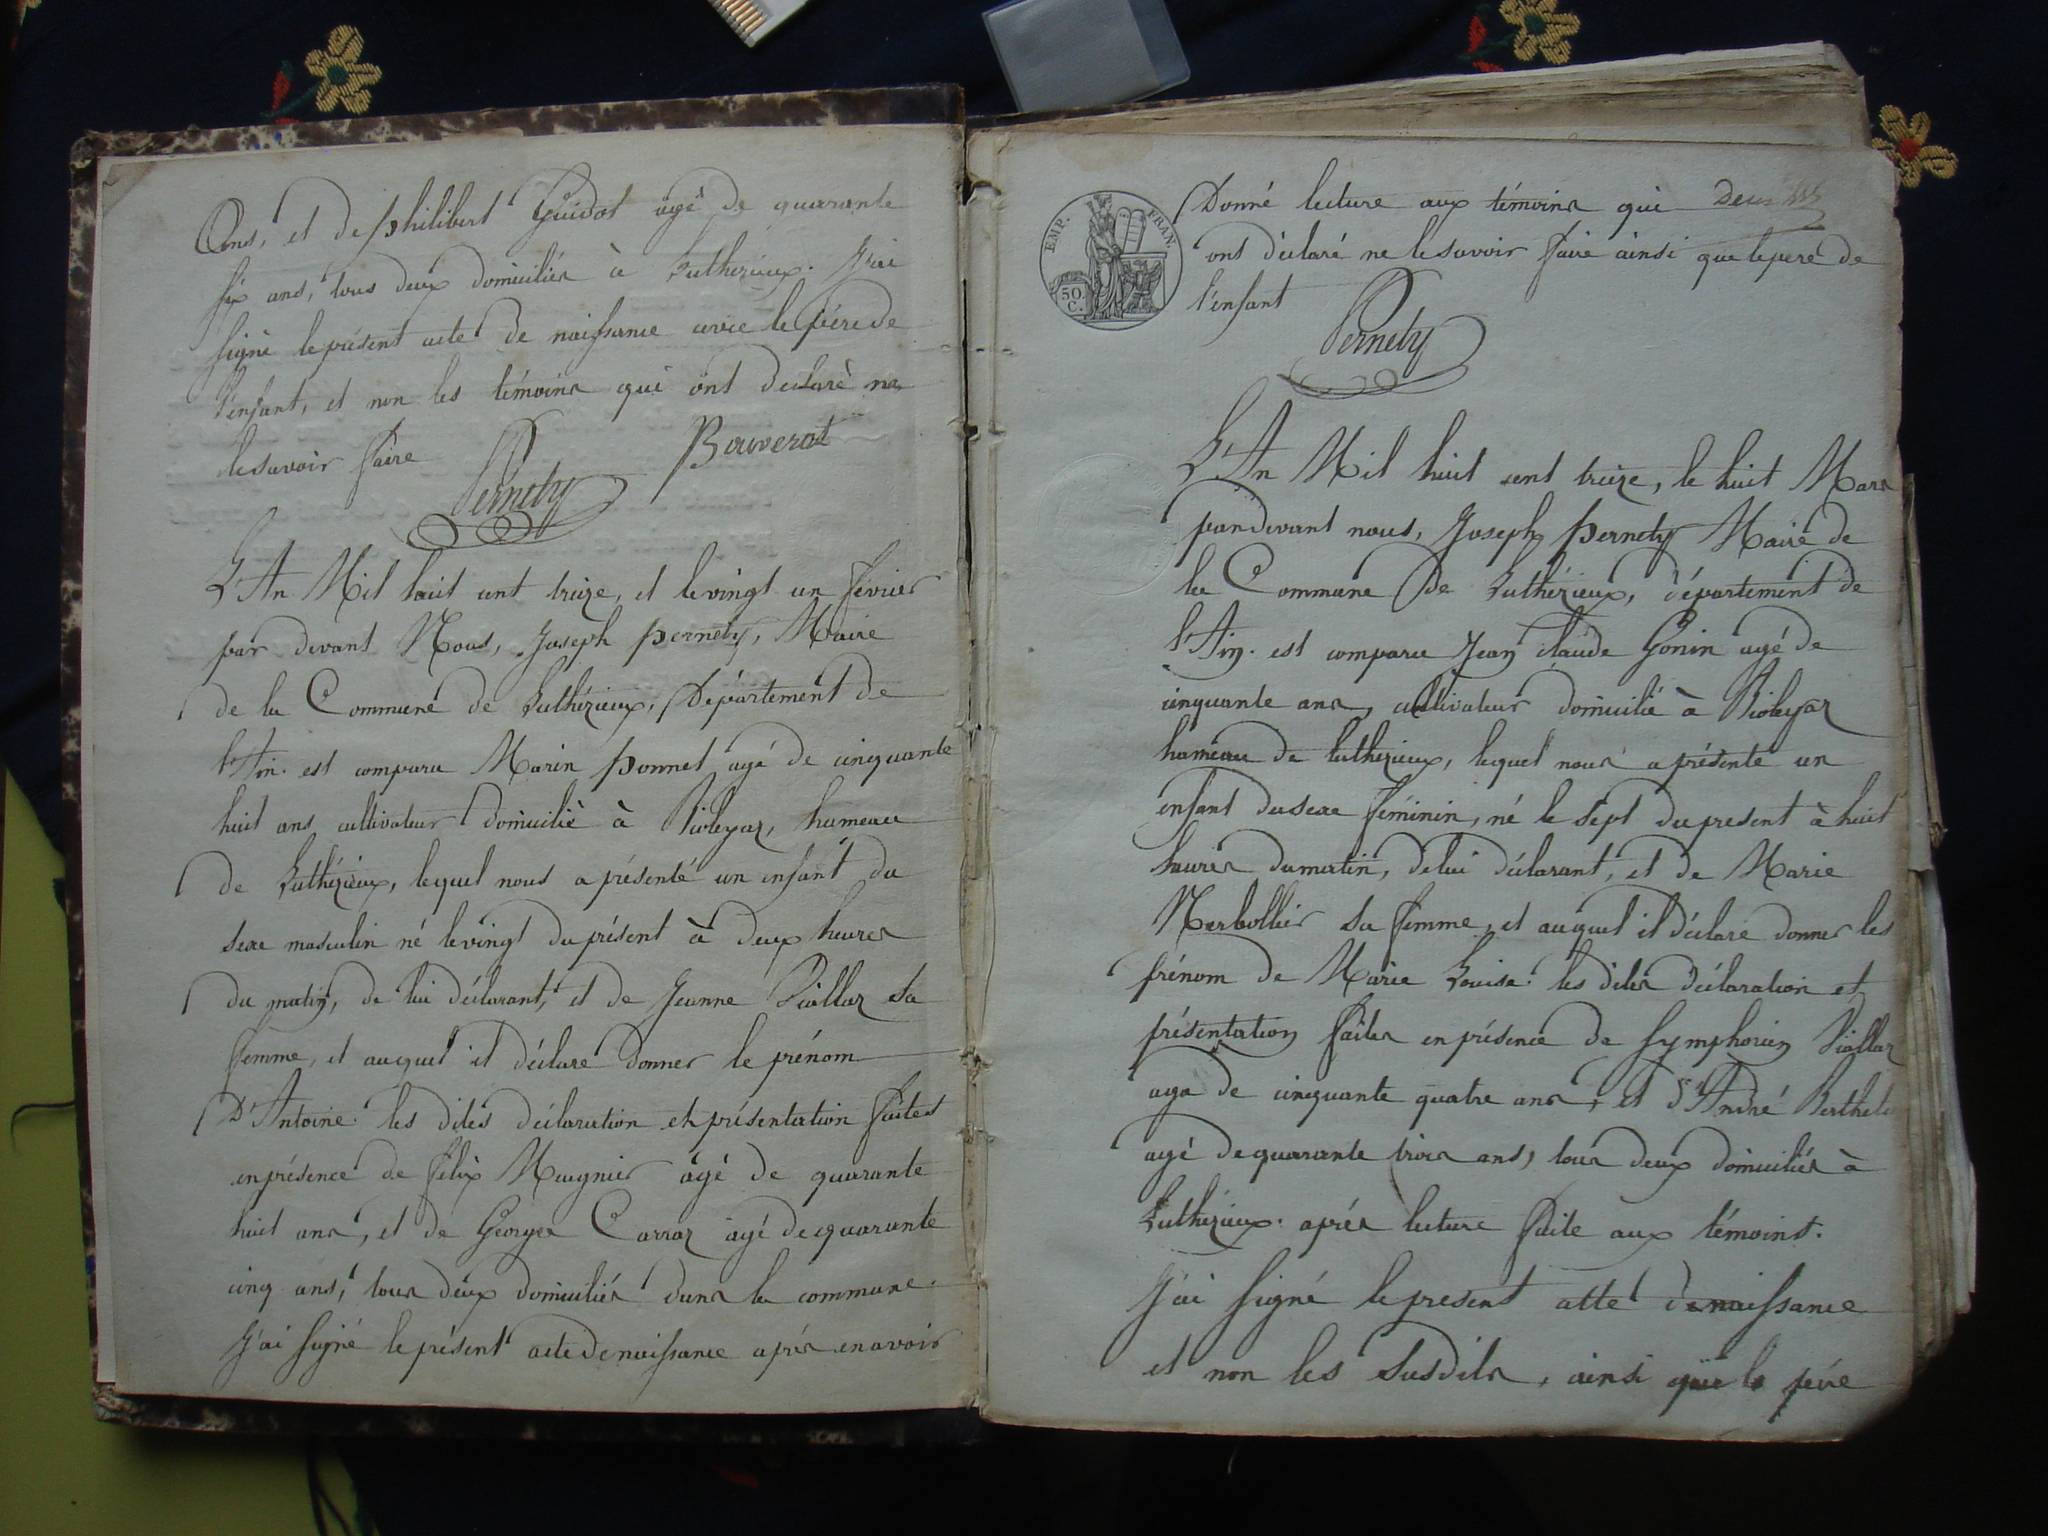 Ans, et de philibert Guidot agé de quarante
six ans, tous deux domiciliés à Luthezieux. J'ai
signé le présent acte de naissance avec le père de
l'enfant, et non les témoins qui ont declaré ne
le savoir faire
Pernety Bouverat
L'An Mil huit cent treize, et le vingt un fevrier
par devant Nous, Joseph pernety, Maire
de la Commune de Luthézieux, Département de
l'Ain. est comparu Marin ponnet agé de cinquante
huit ans cultivateur domicilié à hameau
de Luthézieux, lequel nous a présenté un enfant du
sexe masculin né le vingt du présent à deux heures
du matin, de lui déclarant, et de Jeanne sa
femme, et auquel il déclare donner le prénom
D'Antoine. les dites déclaration et présentation faites
en présence de felix Mugnier âgé de quarante
huit ans, et de George Carraz agé de quarante
cinq ans, tous deux domiciliés dans la commune.
J'ai signé le présent acte de naissance après en avoir
EMP. FRAN.
50. C.
Donné lecture aux témoins qui
ont déclaré ne le savoir faire ainsi que le pere de
l'enfant
Pernety
L'An Mil huit cent treize, le huit Mars
pardevant nous, Joseph pernety Maire de
la Commune De Luthézieux, département de
l'Ain. est comparu Jean claude Gonin agé de
cinquante ans, cultivateur domicilié à
hameau de luthezieux, lequel nous a présenté un
enfant du sexe féminin, né le sept du present à huit
heures du matin, de lui déclarant, et de Marie
sa femme, et auquel il déclare donner les
prénom de Marie Louise. les dites déclaration et
présentation faites en présence de Symphorien
agé de cinquante quatre ans, et Sr André
agé de quarante trois ans, tous deux domiciliés à
Luthezieux. après lecture faite aux témoins.
J'ai signé le present acte de naissance
et non les susdits, ainsi que le père